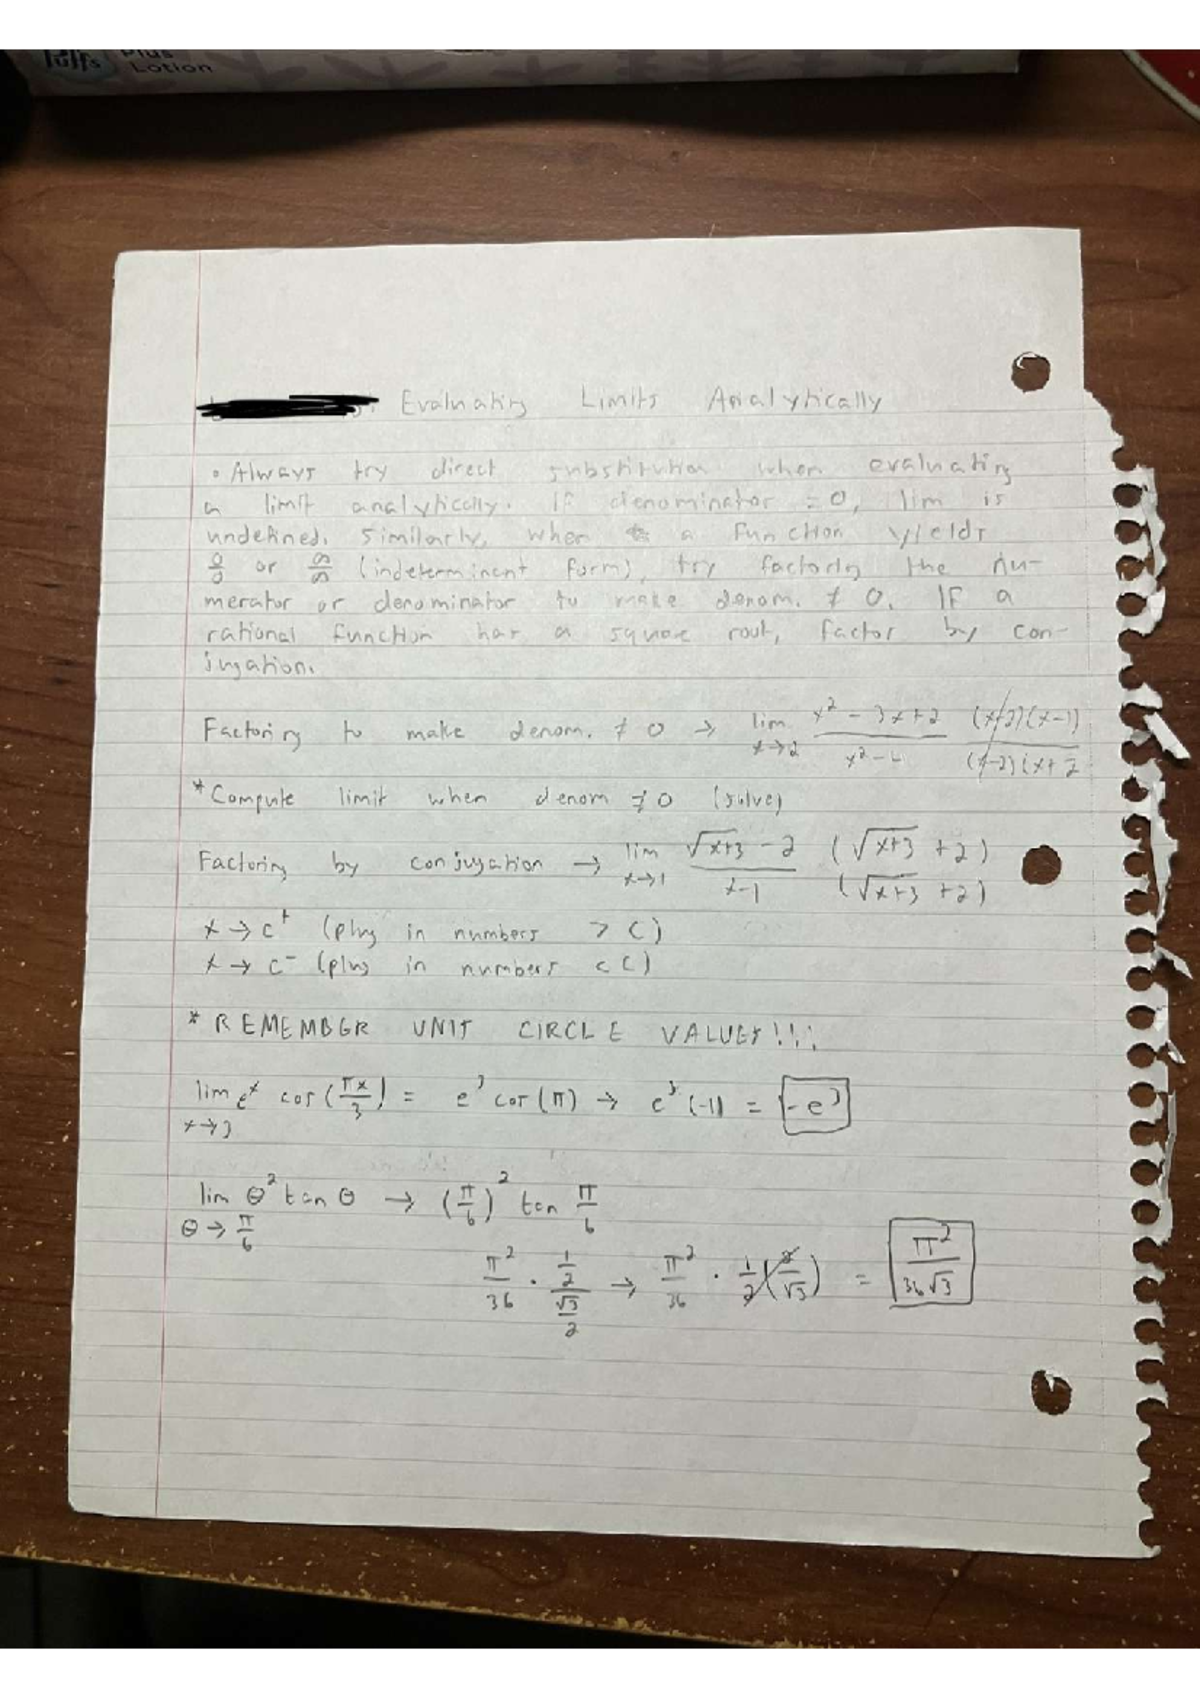 Puffs Plus
Lotion
Evaluating Limits Analytically
• Always try direct substitution when evaluating
a limit analytically. If denominator = 0, lim is
undefined. Similarly, when a function yields
0/0 or ∞/∞ (indeterminent form), try factoring the nu-
merator or denominator to make denom. ≠ 0. If a
rational function has a square rout, factor by con-
jugation.
Factoring to make denom. ≠ 0 → lim x→2 (x² - 3x+2)/(x²-4) ((x-2)(x-1))/((x-2)(x+2
*Compute limit when denom ≠ 0 (solve)
Factoring by conjugation → lim x→1 (√(x+3) - 2)/(x-1) (√(x+3) +2)/(√(x+3) +2)
x → c⁺ (plug in numbers > c)
x → c⁻ (plug in numbers < c)
* REMEMBER UNIT CIRCLE VALUES!!!
lim x→3 eˣ cos(πx/3) = e³ cos(π) → e³(-1) = -e³
lim θ→π/6 θ² tan θ → (π/6)² tan π/6
π²/36 · (1/2)/(√3/2) → π²/36 · 1/2(2/√3) = π²/(36√3)